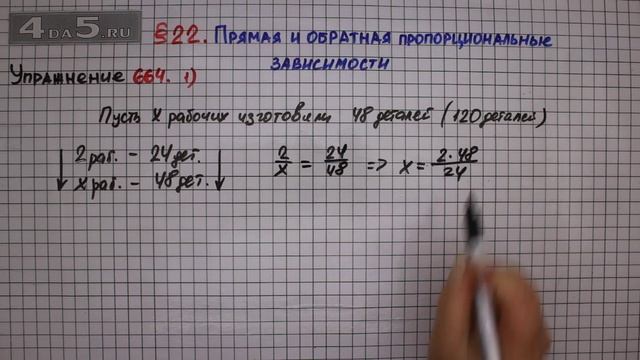 4DA5.RU
§22. Прямая и обратная пропорциональные
зависимости
Упражнение 664. 1)
Пусть x рабочих изготовили 48 деталей (120 деталей)
2 раб. - 24 дет.
x раб. - 48 дет.
2/x = 24/48 => x = 2·48/24